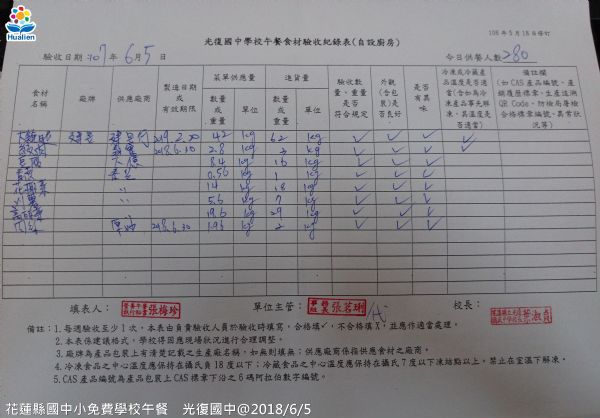 Hualien
光復國中學校午餐食材驗收紀錄表(自設廚房)
106年5月18日修訂
驗收日期:107年6月5日
今日供餐人數280
食材名稱 廠牌 供應廠商 製造日期或有效期限 菜單供應量 進貨量 驗收數量、重量是否符合規定 外觀(含包裝)是否良好 是否有異味 冷凍或冷藏產品溫度是否適當(含如為冷凍產品事先解凍,其溫度是否適當) 備註欄(如CAS產品編號、產銷履歷標章、生產追溯QR Code、防檢局屠檢合格標章編號、異常狀況等)
數量或重量 單位 數量或重量 單位
2019.2.20 42 kg 62 kg ✓ ✓ ✓ ✓
2018.6.10 2.8 kg 2 kg ✓ ✓ ✓
8.4 kg 16 kg ✓ ✓ ✓
0.56 kg 1 kg ✓ ✓ ✓
花椰菜 〃 14 kg 18 kg ✓ ✓ ✓
〃 5.6 kg 7 kg ✓ ✓ ✓
19.6 kg 29 kg ✓ ✓ ✓
2018.6.30 1.96 kg 2 kg ✓ ✓ ✓
填表人: 張梅珍 單位主管: 張茗琳 代 校長:
備註:1.每週驗收至少1次,本表由負責驗收人員於驗收時填寫,合格填✓,不合格填X,並應作適當處理。
2.本表係建議格式,學校得因應現場狀況進行合理調整。
3.廠牌為產品包裝上有清楚記載之生產廠名稱,如無則填無;供應廠商係指供應食材之廠商。
4.冷凍食品之中心溫度應保持在攝氏負18度以下;冷藏食品之中心溫度應保持在攝氏7度以下凍結點以上,禁止在室溫下解凍。
5.CAS產品編號為產品包裝上CAS標章下沿之6碼阿拉伯數字編號。
花蓮縣國中小免費學校午餐 光復國中@2018/6/5